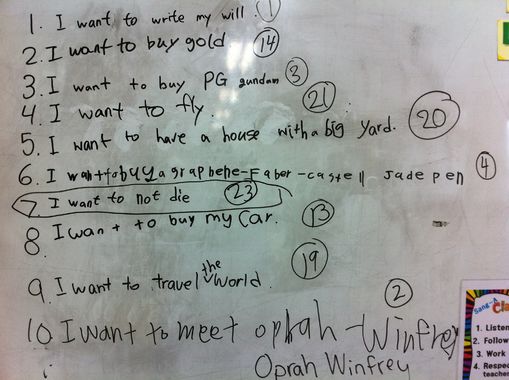 1. I want to write my will. 1
2. I want to buy gold. 14
3. I want to buy PG gundam 3
4. I want to fly. 21
5. I want to have a house with a big yard. 20
6. I want to buy a grap behe-Faber-castell Jade pen 4
7 I want to not die 23
8. I want to buy my car. 13
9. I want to travel the world. 19
10. I want to meet oprah-Winfrey 2
Oprah Winfrey
Sang-A Cla
1. Listen
2. Follow
3. Work
4. Respec
teache